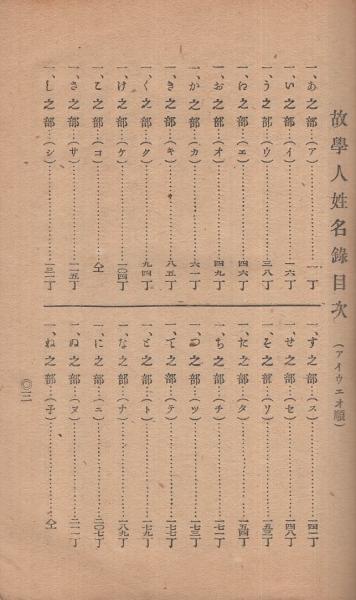 故學人姓名錄目次
（アイウエオ順）
一、あ之部…（ア）……一丁
一、い之部…（イ）……一六丁
一、う之部…（ウ）……三八丁
一、え之部…（エ）……四六丁
一、お之部…（オ）……四九丁
一、か之部…（カ）……六一丁
一、き之部…（キ）……八五丁
一、く之部…（ク）……九四丁
一、け之部…（ケ）……一〇四丁
一、こ之部…（コ）……仝
一、さ之部…（サ）……一一五丁
一、し之部…（シ）……一三一丁
一、す之部…（ス）……一四二丁
一、せ之部…（セ）……一四八丁
一、そ之部…（ソ）……一五三丁
一、た之部…（タ）……一五四丁
一、ち之部…（チ）……一七二丁
一、つ之部…（ツ）……一七三丁
一、て之部…（テ）……一七七丁
一、と之部…（ト）……一七九丁
一、な之部…（ナ）……一八九丁
一、に之部…（ニ）……二〇七丁
一、ぬ之部…（ヌ）……二一一丁
一、ね之部…（子）……仝
〇三